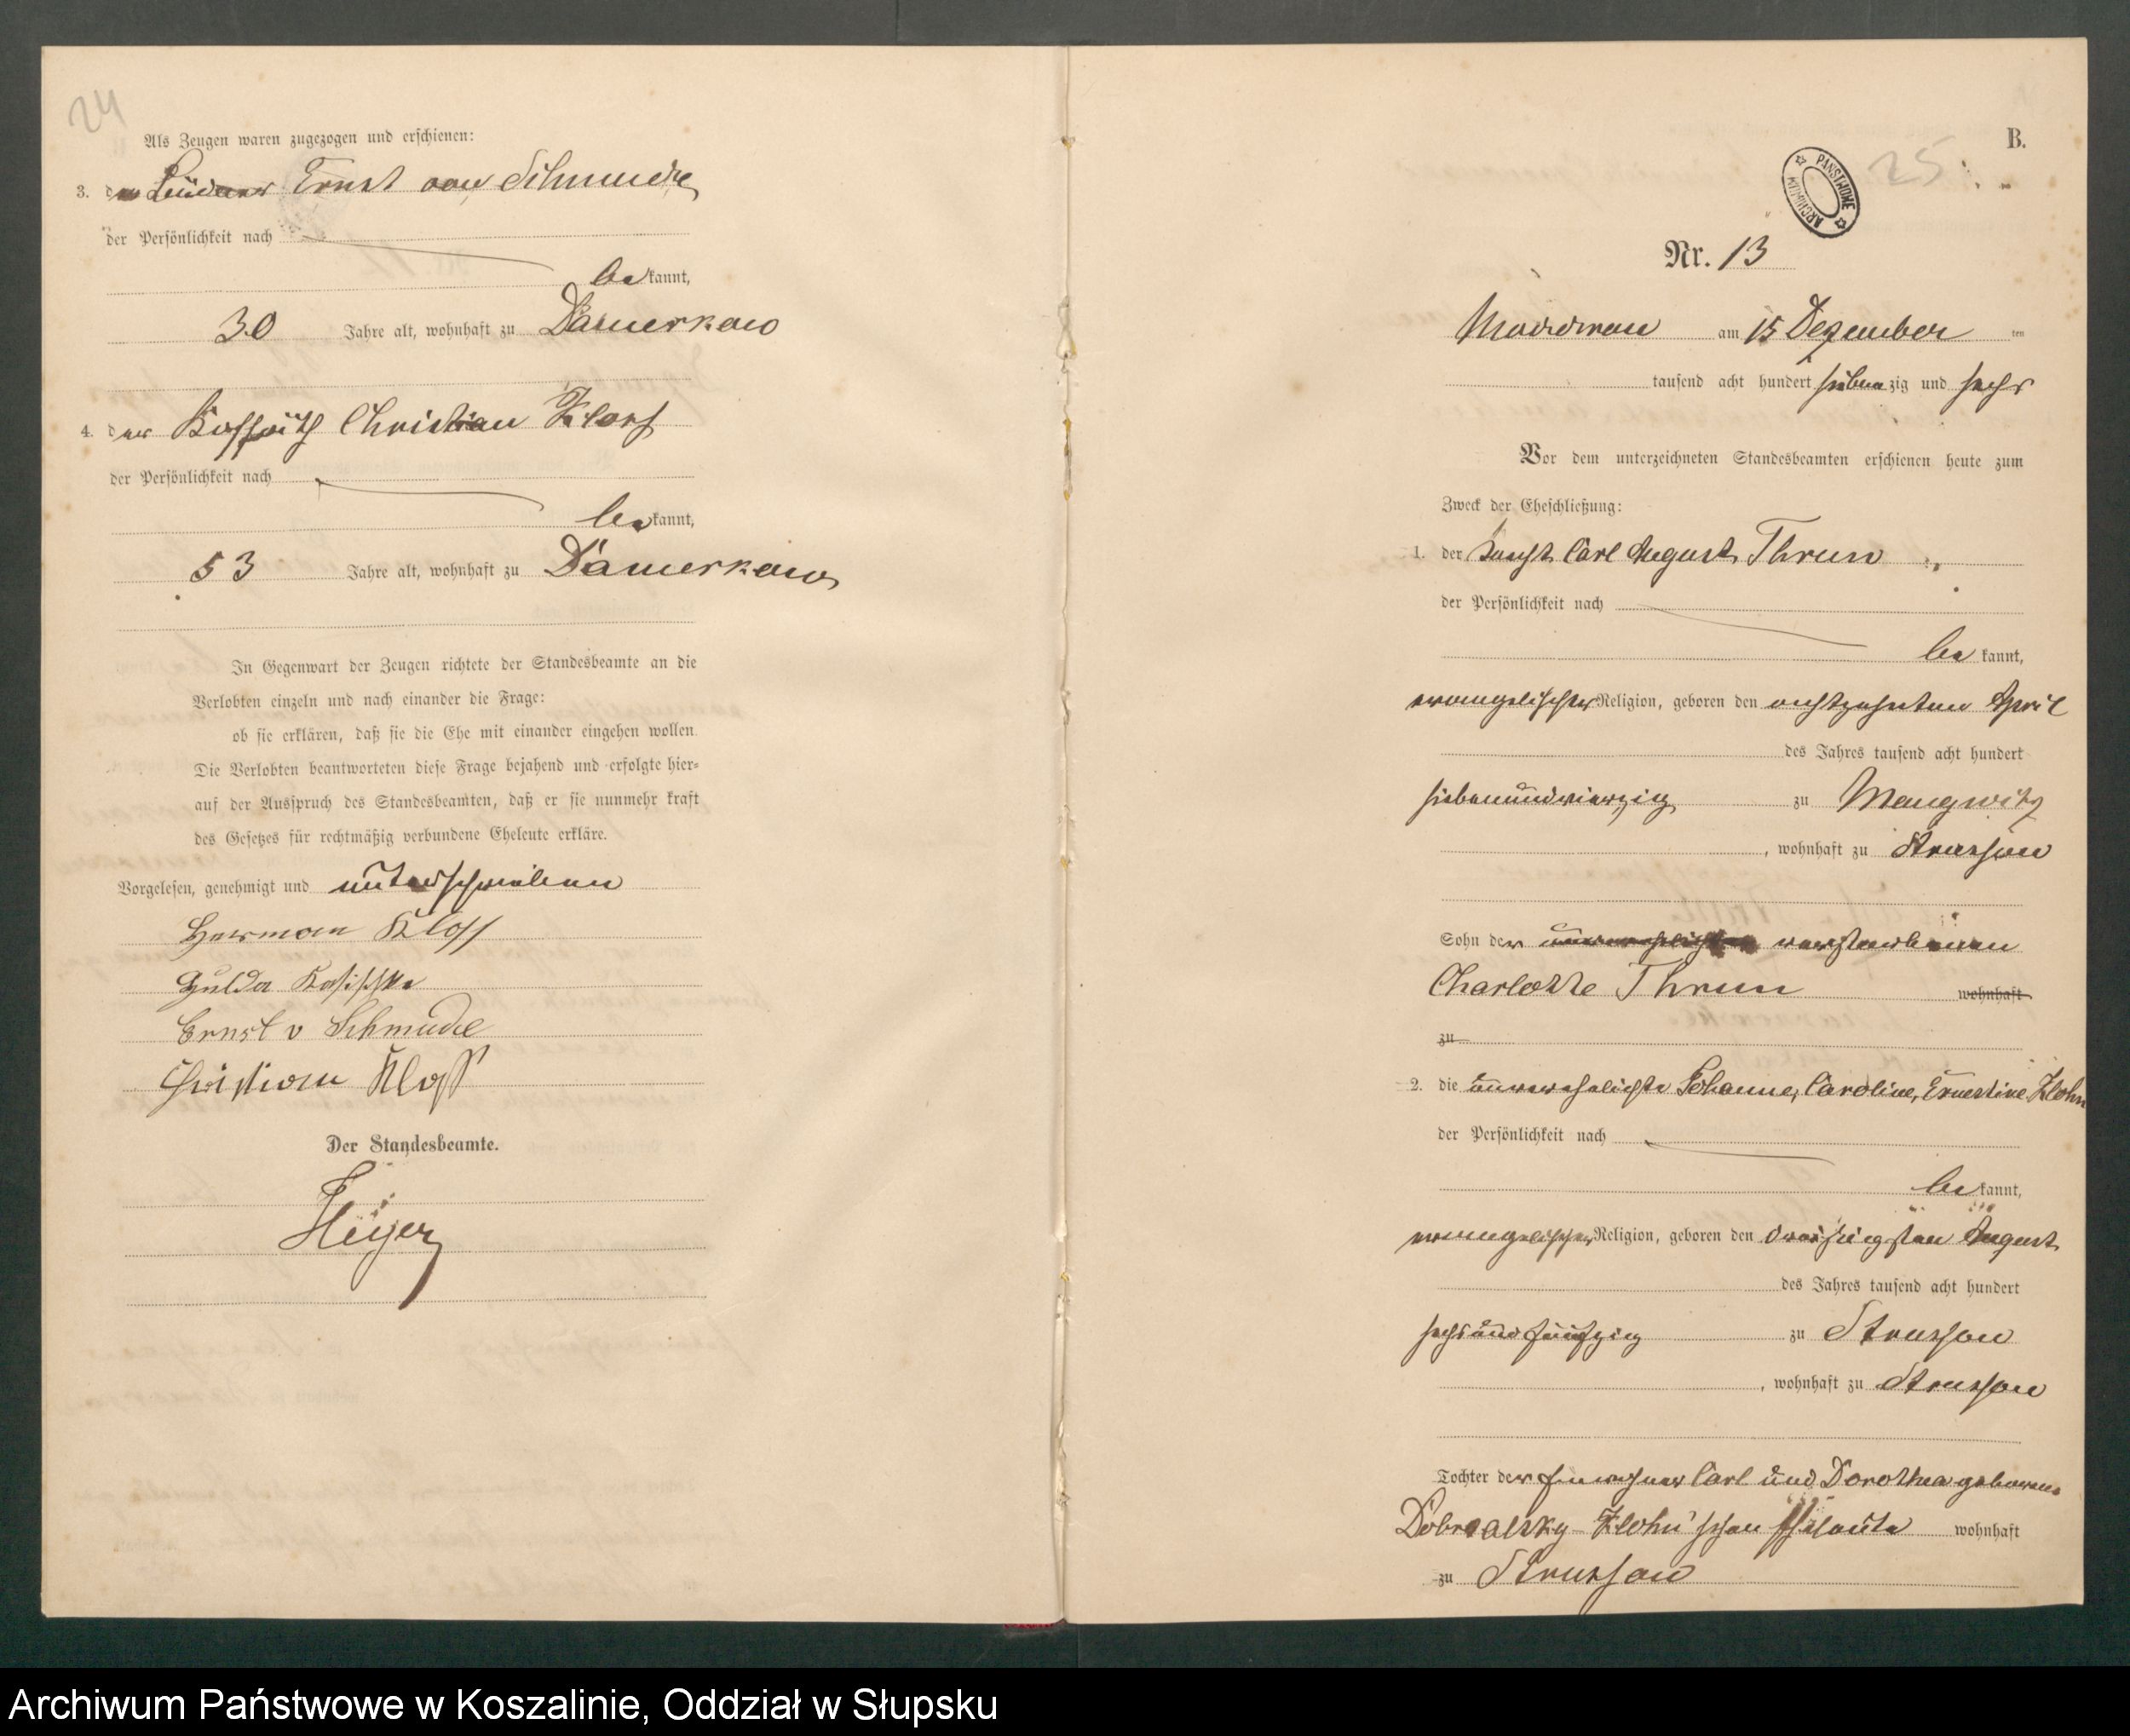 24
Als Zeugen waren zugezogen und erschienen:
3. der Ernst von Schmude
der Persönlichkeit nach
bekannt,
30 Jahre alt, wohnhaft zu Damerkow
4. der Kossäth Christian Kloss
der Persönlichkeit nach
bekannt,
53 Jahre alt, wohnhaft zu Damerkow
In Gegenwart der Zeugen richtete der Standesbeamte an die
Verlobten einzeln und nach einander die Frage:
ob sie erklären, daß sie die Ehe mit einander eingehen wollen.
Die Verlobten beantworteten diese Frage bejahend und erfolgte hier=
auf der Ausspruch des Standesbeamten, daß er sie nunmehr kraft
des Gesetzes für rechtmäßig verbundene Eheleute erkläre.
Vorgelesen, genehmigt und unterschrieben
Herman Kloss
Hulda
Ernst v Schmude
Christian Kloss
Der Standesbeamte.
Heyer
B.
25
ARCHIWUM PAŃSTWOWE
Nr. 13
am 15 Dezember ten
tausend acht hundert siebenzig und sechs
Vor dem unterzeichneten Standesbeamten erschienen heute zum
Zweck der Eheschließung:
1. der Knecht Carl August Thrun
der Persönlichkeit nach
bekannt,
evangelischer Religion, geboren den achtzehnten April
des Jahres tausend acht hundert
siebenundvierzig zu Mangwitz
, wohnhaft zu Strussow
Sohn der unverehelichten verstorbenen
Charlotte Thrun wohnhaft
zu
2. die unverehelichte Johanne, Caroline, Ernestine Klohn
der Persönlichkeit nach
bekannt,
evangelischer Religion, geboren den dreißigsten August
des Jahres tausend acht hundert
sechsundfünfzig zu Strussow
, wohnhaft zu Strussow
Tochter der Einwohner Carl und Dorothea geborene
Klohn'schen Eheleute wohnhaft
zu Strussow
Archiwum Państwowe w Koszalinie, Oddział w Słupsku